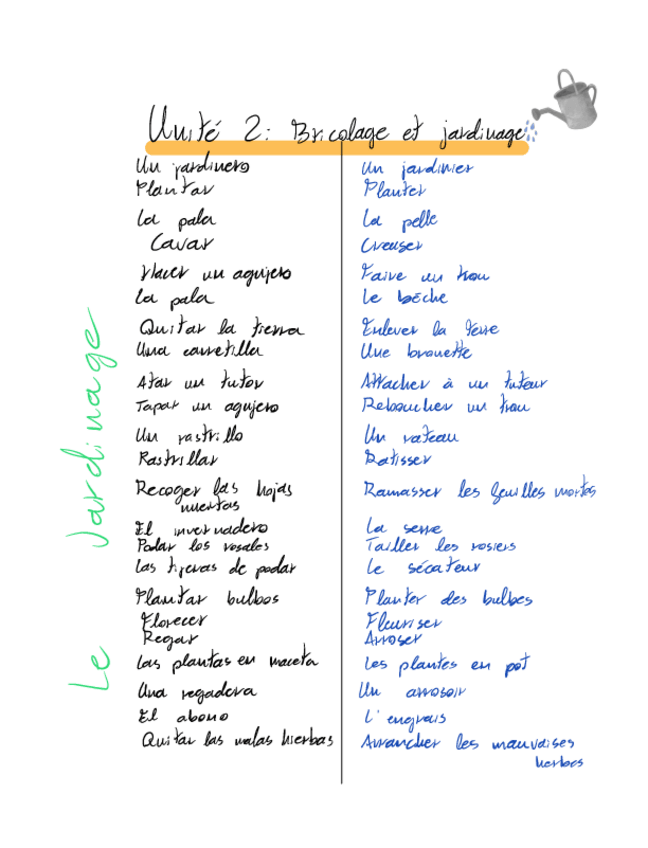 Unité 2: Bricolage et jardinage
Le Jardinage
Un jardinero
Un jardinier
Plantar
Planter
La pala
La pelle
Cavar
Creuser
Hacer un agujero
Faire un trou
La pala
Le bêche
Quitar la tierra
Enlever la terre
Una carretilla
Une brouette
Atar un tutor
Attacher à un tuteur
Tapar un agujero
Reboucher un trou
Un rastrillo
Un rateau
Rastrillar
Ratisser
Recoger las hojas
muertas
Ramasser les feuilles mortes
El invernadero
La serre
Podar los rosales
Tailler les rosiers
Las tijeras de podar
Le sécateur
Plantar bulbos
Planter des bulbes
Florecer
Fleuriser
Regar
Arroser
Las plantas en maceta
Les plantes en pot
Una regadera
Un arrosoir
El abono
L'engrais
Quitar las malas hierbas
Arrancher les mauvaises
herbes